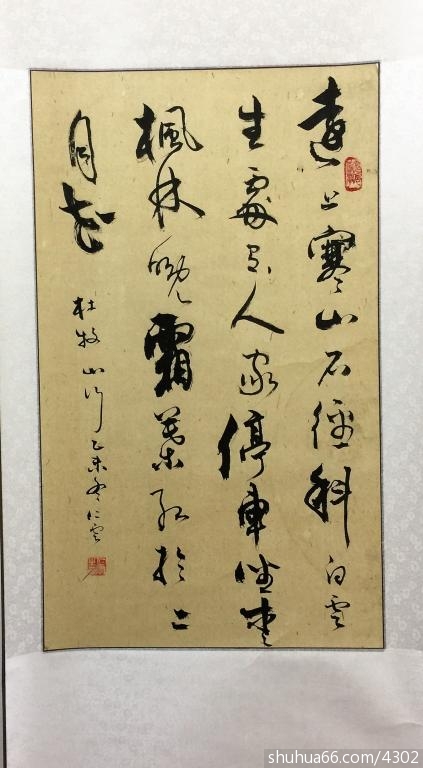 遠上寒山石徑斜白雲
生處有人家停車坐愛
楓林晚霜葉紅於二
月花
杜牧山行乙未冬仁雲
shuhua66.com/4302